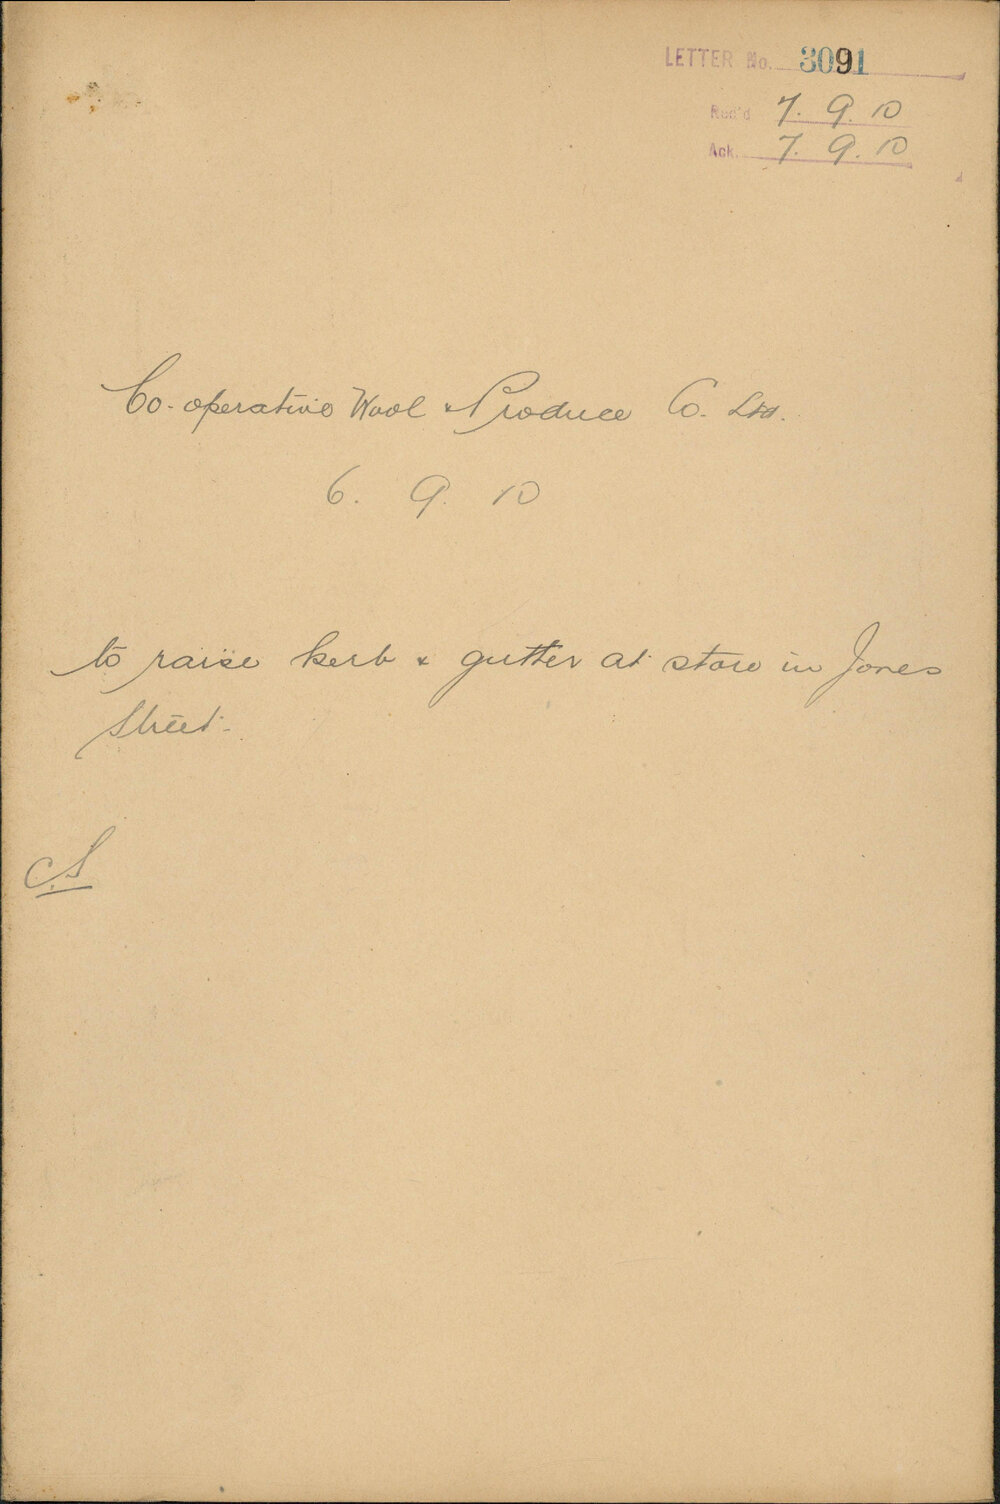 LETTER No. 3091
Rec'd 7. 9. 10
Ack. 7. 9. 10
Co-operative Wool & Produce Co. Ltd.
6. 9. 10
to raise kerb & gutter at store in Jones
Street.
CS